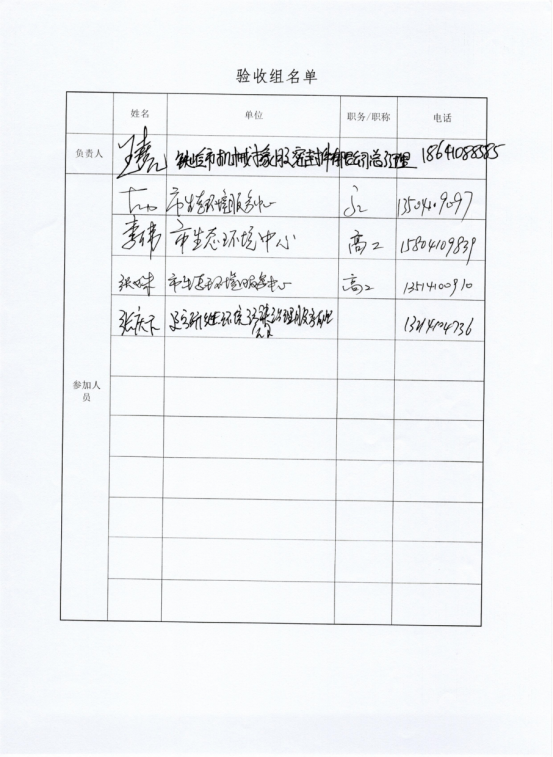 验收组名单
姓名 单位 职务/职称 电话
负责人 铁岭市机械橡胶密封件有限公司 总经理 18641088585
市生态环境服务中心 13504109097
李伟 市生态环境中心 高工 15804109839
张 市生态环境服务中心 高工 13514100910
张庆天 环境污染治理服务有限公司 13214104736
参加人员